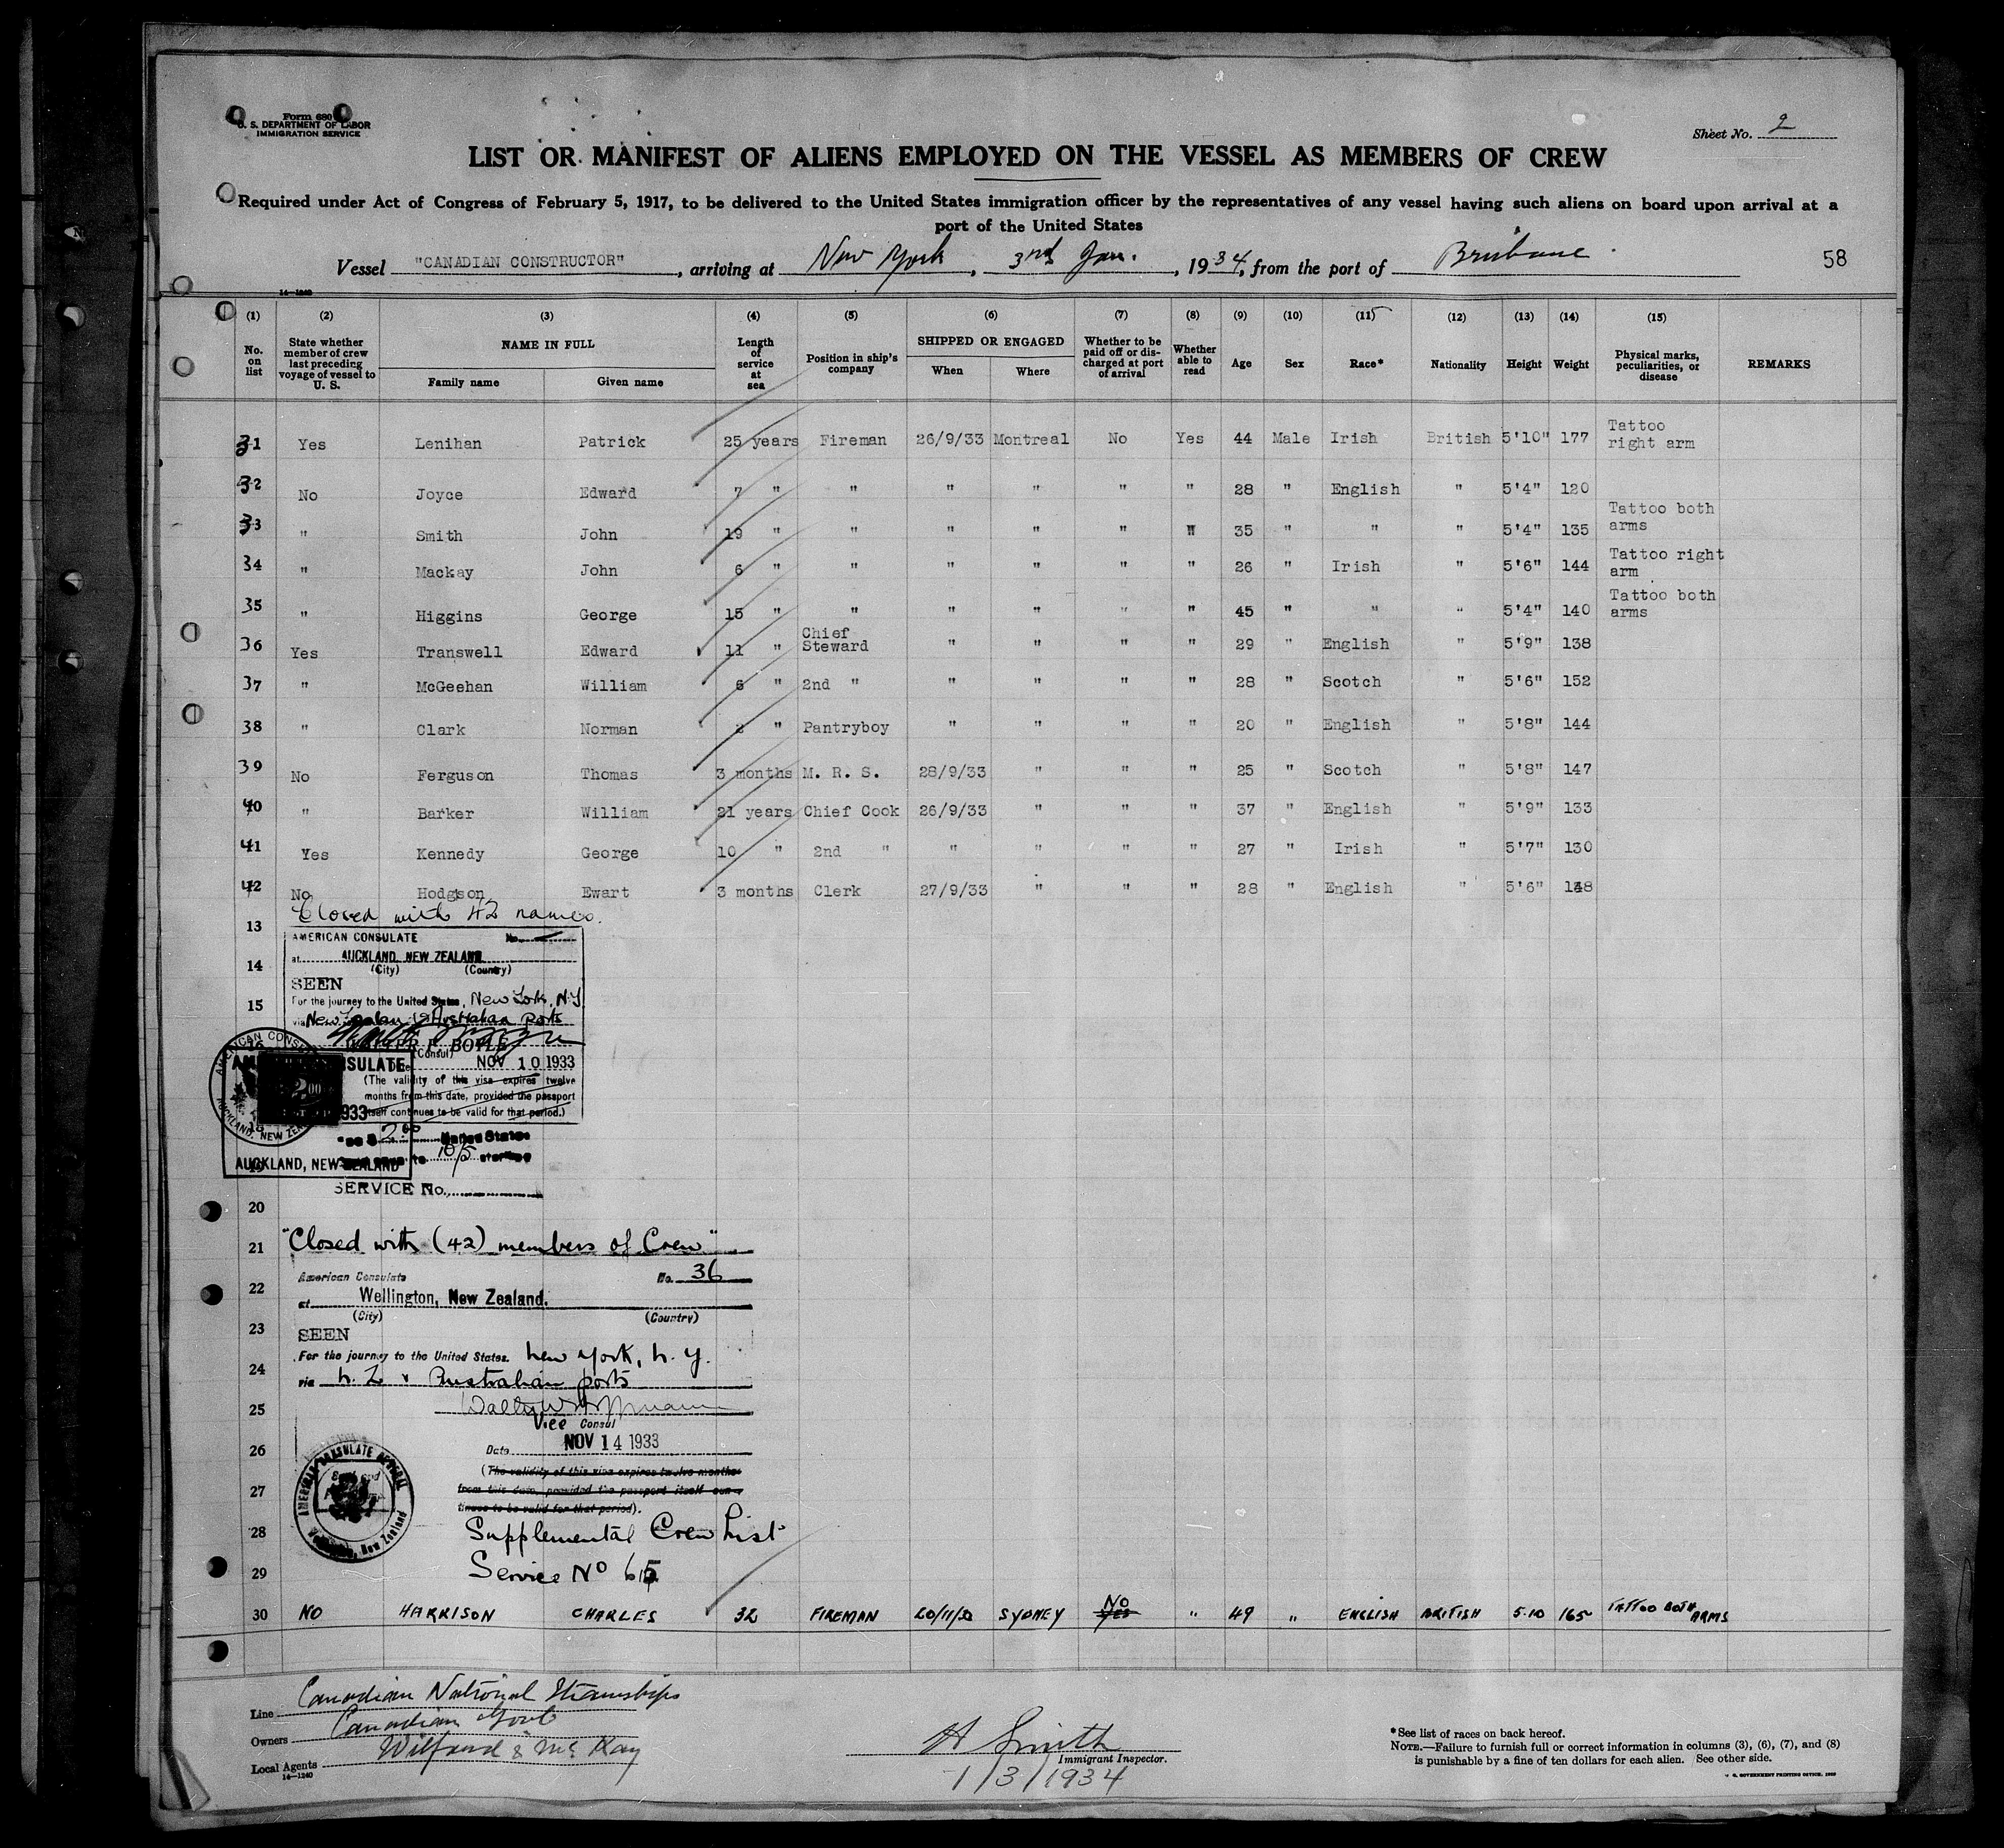 Form 680
U. S. DEPARTMENT OF LABOR
IMMIGRATION SERVICE
Sheet No. 2
LIST OR MANIFEST OF ALIENS EMPLOYED ON THE VESSEL AS MEMBERS OF CREW
Required under Act of Congress of February 5, 1917, to be delivered to the United States immigration officer by the representatives of any vessel having such aliens on board upon arrival at a
port of the United States
Vessel "CANADIAN CONSTRUCTOR", arriving at New York, 3rd Jan., 1934, from the port of Brisbane
58
14—1240
(1) (2) (3) (4) (5) (6) (7) (8) (9) (10) (11) (12) (13) (14) (15)
No. on list
State whether member of crew last preceding voyage of vessel to U. S.
NAME IN FULL
Family name
Given name
Length of service at sea
Position in ship's company
SHIPPED OR ENGAGED
When
Where
Whether to be paid off or discharged at port of arrival
Whether able to read
Age
Sex
Race*
Nationality
Height
Weight
Physical marks, peculiarities, or disease
REMARKS
31 Yes Lenihan Patrick 25 years Fireman 26/9/33 Montreal No Yes 44 Male Irish British 5'10" 177 Tattoo right arm
32 No Joyce Edward 7 " " " " " " 28 " English " 5'4" 120
33 " Smith John 19 " " " " " " 35 " " " 5'4" 135 Tattoo both arms
34 " Mackay John 6 " " " " " " 26 " Irish " 5'6" 144 Tattoo right arm
35 " Higgins George 15 " " " " " " 45 " " " 5'4" 140 Tattoo both arms
36 Yes Transwell Edward 11 " Chief Steward " " " " 29 " English " 5'9" 138
37 " McGeehan William 6 " 2nd " " " " " 28 " Scotch " 5'6" 152
38 " Clark Norman 2 " Pantryboy " " " " 20 " English " 5'8" 144
39 No Ferguson Thomas 3 months M. R. S. 28/9/33 " " " 25 " Scotch " 5'8" 147
40 " Barker William 21 years Chief Cook 26/9/33 " " " 37 " English " 5'9" 133
41 Yes Kennedy George 10 " 2nd " " " " " 27 " Irish " 5'7" 130
42 No Hodgson Ewart 3 months Clerk 27/9/33 " " " 28 " English " 5'6" 138
Closed with 42 names.
13
AMERICAN CONSULATE No.
at AUCKLAND, NEW ZEALAND
14
(City) (Country)
SEEN
15
For the journey to the United States, New York, N.Y.
via New Zealand & Australian ports
16
WALTER F. BOYLE
(Consul)
AMERICAN CONSULATE
Date NOV 10 1933
(The validity of this visa expires twelve
months from this date, provided the passport
itself continues to be valid for that period.)
AUCKLAND, NEW ZEALAND
SERVICE No.
20
21
"Closed with (42) members of Crew"
American Consulate No. 36
22
at Wellington, New Zealand.
(City) (Country)
23
SEEN
For the journey to the United States. New York, N.Y.
24
via N. Z & Australian ports
25
Vice Consul
26
Date NOV 14 1933
(The validity of this visa expires twelve months
27
from this date, provided the passport itself con-
tinues to be valid for that period).
AMERICAN CONSULATE GENERAL
Wellington, New Zealand
28
Supplemental Crew List
29
Service No
30 NO HARRISON CHARLES 32 FIREMAN SYDNEY No Yes " 49 " ENGLISH BRITISH 5.10 165 TATTOO BOTH ARMS
Line Canadian National Steamships
Owners Canadian Govt
Local Agents Wilford & McKay
14—1240
H Smith
Immigrant Inspector.
1/3/1934
*See list of races on back hereof.
NOTE.—Failure to furnish full or correct information in columns (3), (6), (7), and (8)
is punishable by a fine of ten dollars for each alien. See other side.